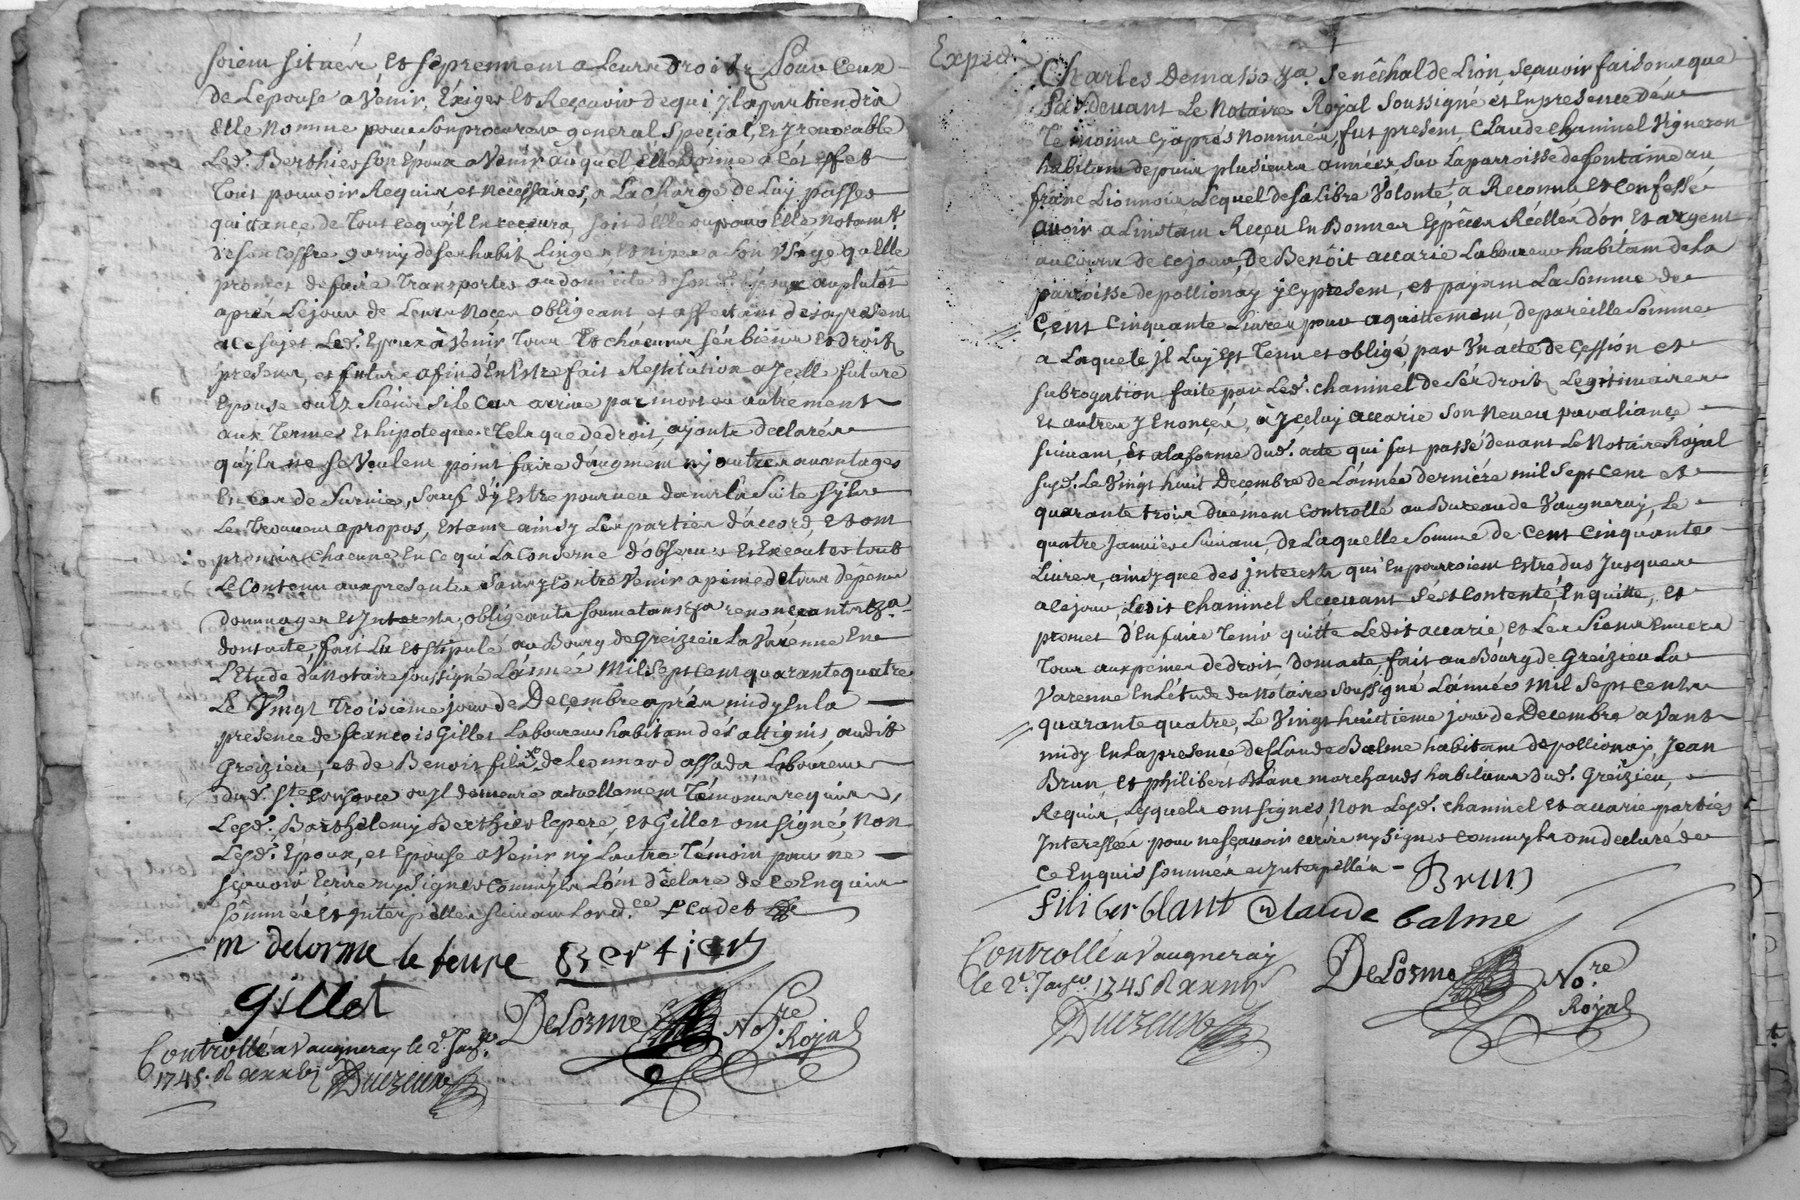 soient situés, et se prennent a Leurs droits Pour Ceux
de Lepouse a Venir, Exiger et Recevoir de qui Jl apartiendra
Elle Nomme pour son procureur general special, et Jrrevocable
Led. Berthier son Epoux a Venir auquel elle donne a cet effet
Tout pouvoir Requis et necessaires, a La charge de Luy passer
quittance de Tout ce qu'jl En recevra, soit d'elle ou pour Elle Notamt.
de son Coffre garny de ses habits Linges et nipes a son Vsage qu'Elle
promet de faire Transporter au domicile de son d. Epoux au plutôt
après Le jour de Leurs Noces obligeant et affectant des a present
a Ce sujet Led. Epoux à Venir Tous Et chacuns ses biens Et droits
presens, et futurs afin d'En Estre fait Restitution a Jcelle future
Epouse ou ez siens si le Cas arrive par mort ou autrement
aux Termes Et hipoteques Tels que de droit, ajoute declarés
qu'jls ne se Veulent point faire d'augment ny autres avantages
En Cas de Survie, sauf d'y Estre pourveu dans la Suite s'jls
Le Trouvent a propos, Estant ainsy Les parties d'accord, et ont
promis chacune En ce qui La Conserne d'observer et Executer tout
Le Contenu aux presentes sans y Contrevenir a peine de tous depens
dommages Et Jnterests, obligeants soumetans &a renonçeants &a
dont acte, fait Lu et stipulé au Bourg de Greizieu La Varenne En
L'Etude du Notaire soussigné L'année Mil Sept cent quarante quatre
Le Vingt Troisieme jour de Decembre après midy En la
presence de françois Gillet Laboureur habitant des attignis, audit
Greizieu, et de Benoit fils xo de Leonnard assada Laboureur
dud. Ste Consorce ou jl demeure actuellement Témoins requis,
Lesd. Barthelemy Berthier le pere, et Gillet ont signé, Non
Lesd. Epoux, et Epouse a Venir nj Lautre Témoin pour ne
sçavoir Ecrire ny Signer Comm'jls L'ont declare de ce Enquis
sommés et Jnterpellés suivant Lord.ce
m delorme le jeune Bertier
Gillet
DeLorme No.re Royal
Controllé a Vaugneray le 2e Janver
1745. R
Expedie
Charles Demasso &a. Senêchal de Lion Sçavoir faisons que
Par devant Le Notaire Royal Soussigné et En presence des
Temoins Cy après Nommés, fut present Claude Chaninel Vigneron
habitant depuis plusieurs années sur La parroisse de fontaine au
franc Lionnois Lequel de sa Libre Volonté, a Reconnu et Confessé
avoir a L'instant Reçeu En Bonnes Especes Réelles d'or Et argent
au Cours de Ce jour, De Benoit accarie Laboureur habitant de La
parroisse de pollionay jcy present, et payant La Somme de
Cent Cinquante Livres pour aquittement de pareille Somme
a Laquele jl Luy Est Tenu et obligé, par Vn acte de Cession et
subrogation faite par Led. chaninel de Ses droits Legitimaires
Et autres y Enonçés, à Jceluy accarie son Neveu par aliance
suivant, Et a la forme dud. acte qui fut passé devant Le Notaire Royal
susd. Le Vingt huit Decembre de L'année derniére mil Sept Cent et
quarante trois duement Controllé au Bureau de Vaugneray, Le
quatre Janvier Suivant, De Laquelle Somme de Cent Cinquante
Livres, ainsy que des jnterests qui En pourroient Estre dus Jusques
a ce jour, Ledit Chaninel Recevant s'est Contenté, En quitte, et
promet d'En faire Tenir quitte Ledit accarie et Les Siens Envers
Tous aux peines de droit Dont acte, fait au Bourg de Greizieu La
Varenne En Létude du Notaire soussigné L'année Mil Sept Cents
quarante quatre, Le Vingt huictieme jour de Decembre avant
midy En La presence de Claude Balme habitant de pollionay, Jean
Brun et philibert Blanc marchands habitans dud. Greizieu,
Requis, Lesquels ont signés, Non Lesd. Chaninel Et accarie parties
Jnteressées pour ne sçavoir ecrire ny signer comm'jls ont declaré de
Ce Enquis sommés et Jnterpellés - Brun
filiber blant Claude balme
Controllé a Vaugneray
le 2e Janver 1745 R
DeLorme No.re Royal